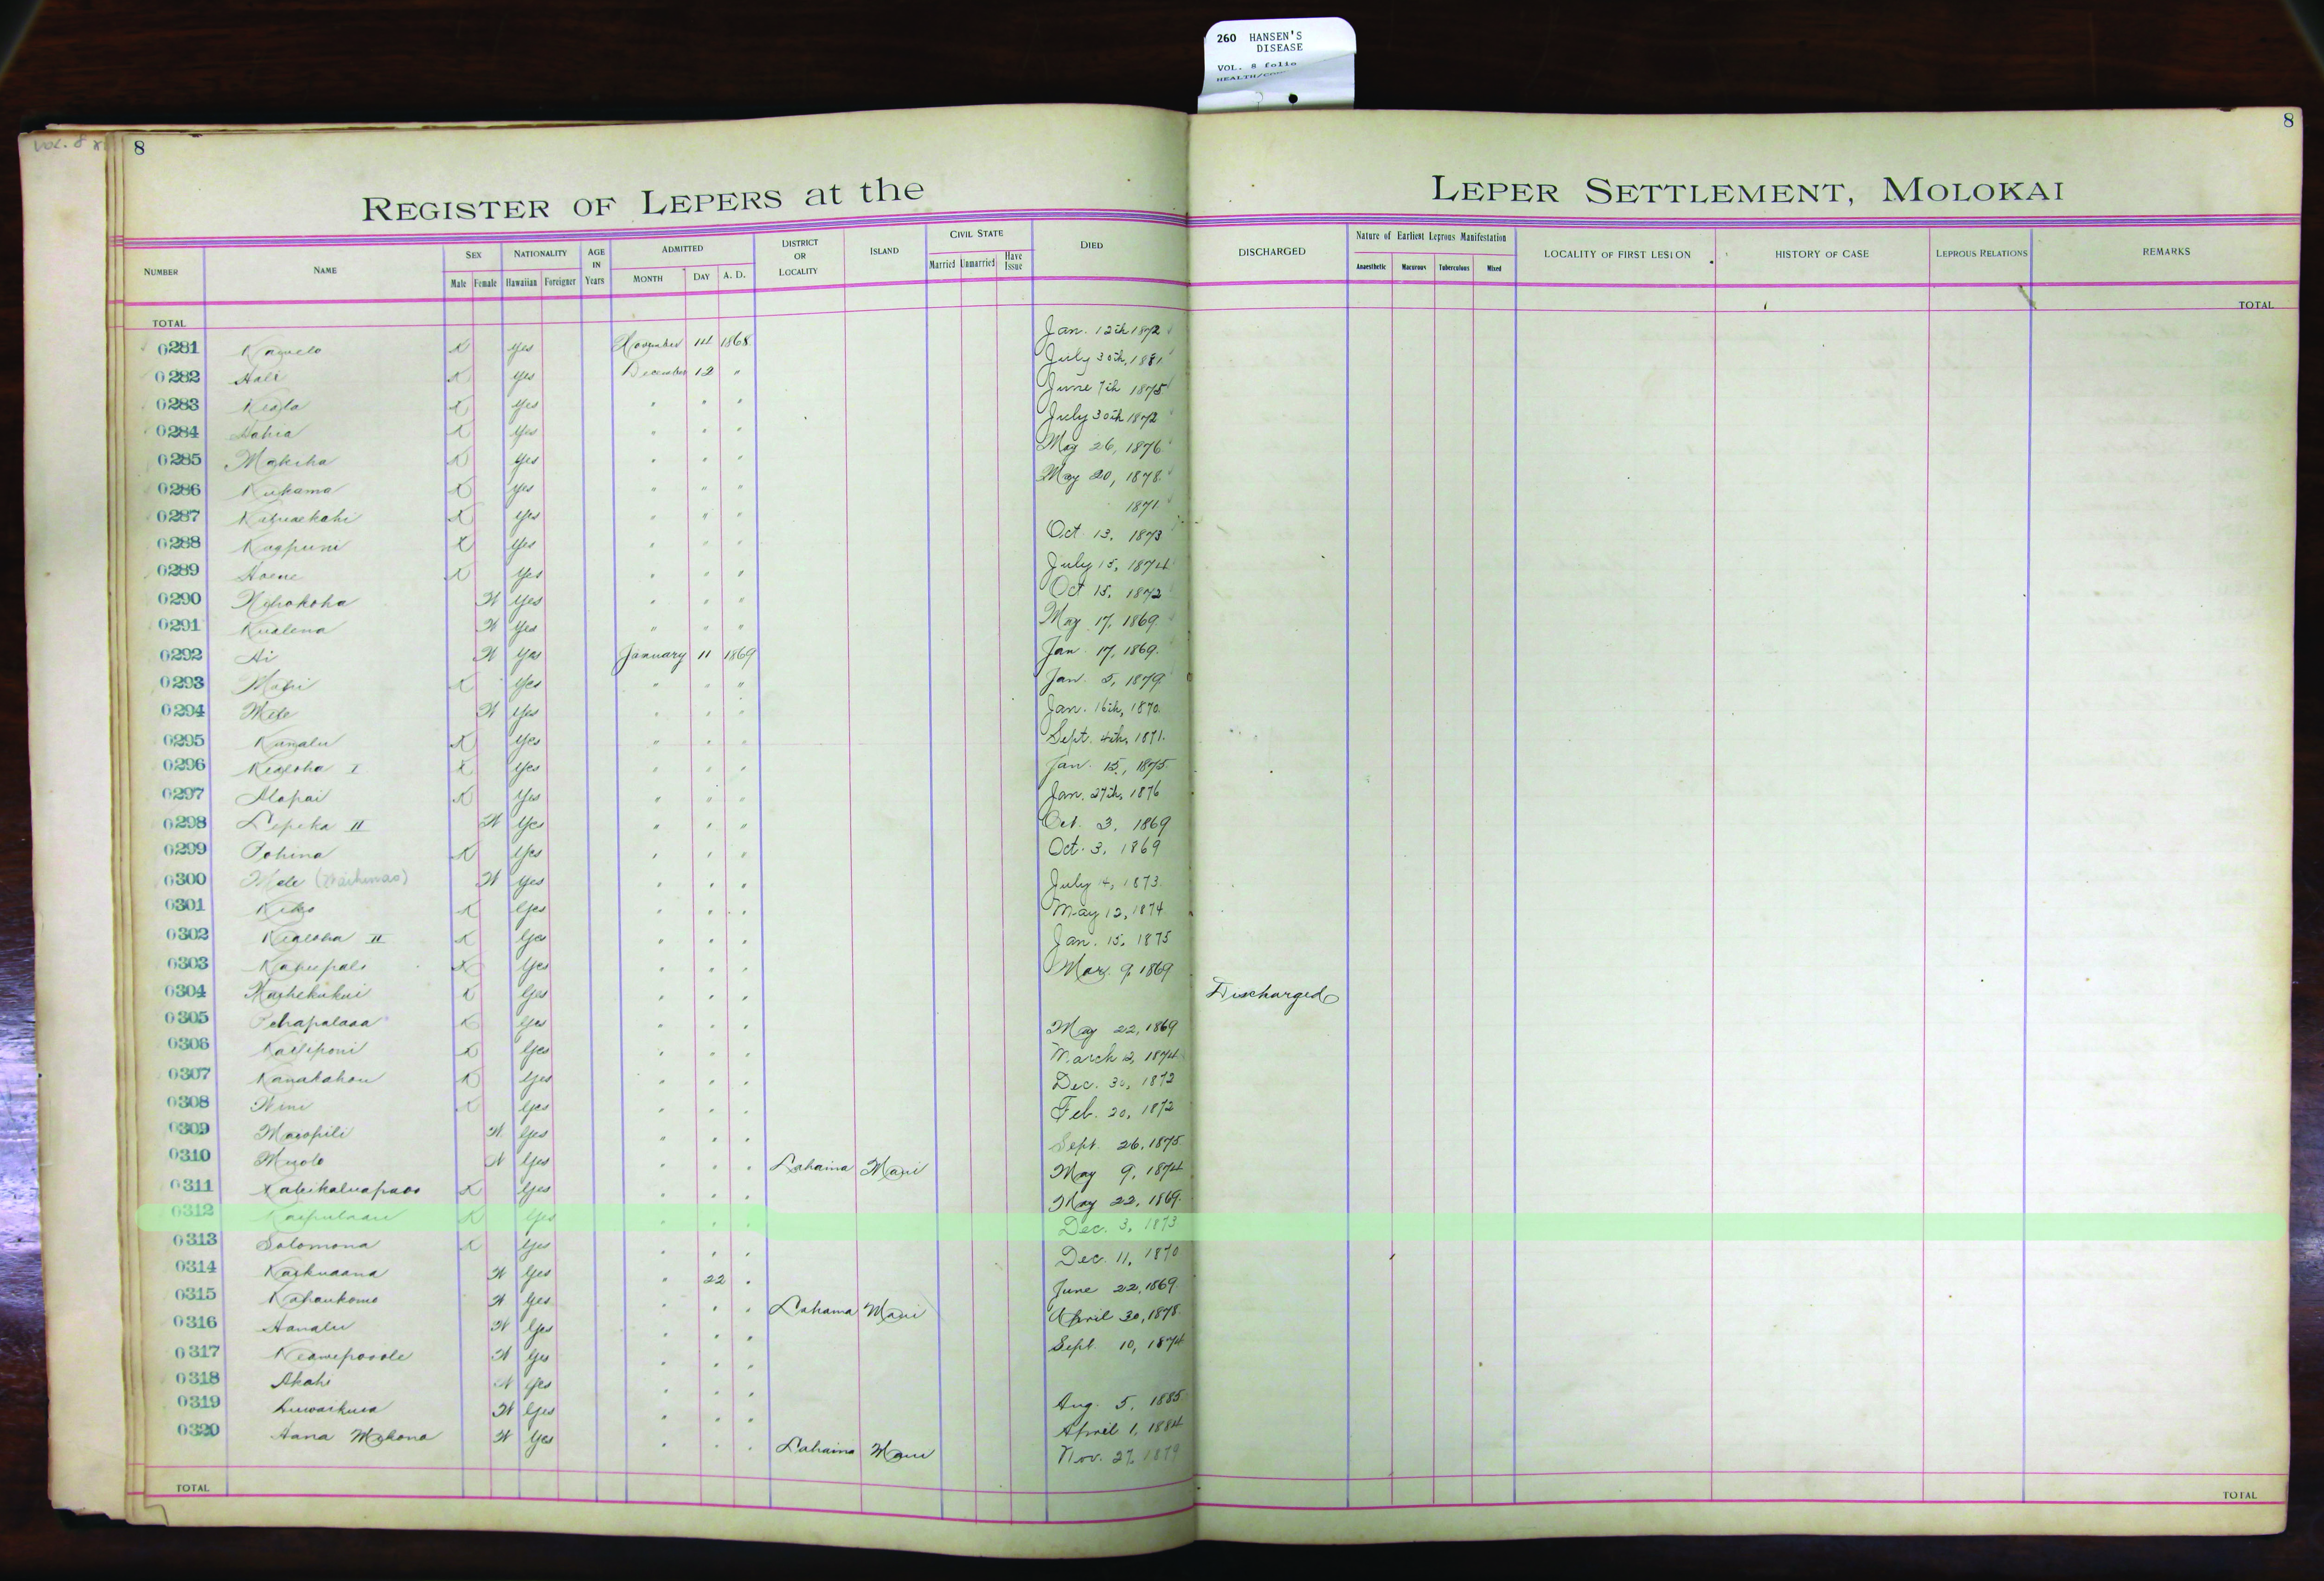 260 HANSEN'S
DISEASE
VOL. 8 folio
VOL. 8
8
8
REGISTER OF LEPERS at the LEPER SETTLEMENT, MOLOKAI
NUMBER NAME SEX Male Female NATIONALITY Hawaiian Foreigner AGE IN Years ADMITTED MONTH DAY A. D. DISTRICT OR LOCALITY ISLAND CIVIL STATE Married Unmarried Have Issue DIED DISCHARGED Nature of Earliest Leprous Manifestation Anaesthetic Macurous Tuberculous Mixed LOCALITY OF FIRST LESION HISTORY OF CASE LEPROUS RELATIONS REMARKS
TOTAL TOTAL
0281 K Yes November 14 1868 Jan. 12th 1872
0282 Hali K Yes December 12 " July 30th, 1881
0283 Keala K Yes " " " June 7th 1875
0284 K Yes " " " July 30th 1872
0285 Makeha K Yes " " " May 26, 1876
0286 Kukama K Yes " " " May 20, 1878
0287 K Yes " " " 1871
0288 K Yes " " " Oct 13, 1873
0289 Hoene K Yes " " " July 15, 1874
0290 W Yes " " " Oct 15, 1872
0291 Kualena W Yes " " " May 17, 1869
0292 Ai W Yes January 11 1869 Jan 17, 1869
0293 K Yes " " " Jan 5, 1879
0294 Mele W Yes " " " Jan. 16th, 1870
0295 K Yes " " " Sept. 4th, 1871
0296 Kealoha I K Yes " " " Jan. 15, 1875
0297 Alapai K Yes " " " Jan. 27th, 1876
0298 Lepeka II W Yes " " " Oct. 3, 1869
0299 Pohina K Yes " " " Oct. 3, 1869
0300 Mele W Yes " " " July 14, 1873
0301 K Yes " " " May 12, 1874
0302 Kealoha II K Yes " " " Jan. 15, 1875
0303 K Yes " " " Mar. 9, 1869
0304 K Yes " " " Discharged
0305 Pehapalaoa K Yes " " " May 22, 1869
0306 Kailiponi K Yes " " " March 12, 1874
0307 Kanakahou K Yes " " " Dec. 30, 1872
0308 Wini K Yes " " " Feb. 20, 1872
0309 W Yes " " " Sept. 26, 1875
0310 W Yes " " " Lahaina Maui May 9, 1874
0311 K Yes " " " May 22, 1869
0312 K Yes " " " Dec. 3, 1873
0313 Solomona K Yes " " " Dec. 11, 1870
0314 Kaikuaana W Yes " 22 " June 22, 1869
0315 W Yes " " " Lahaina Maui April 30, 1878
0316 Hanalu W Yes " " " Sept. 10, 1874
0317 Keawepoole W Yes " " "
0318 Akahi W Yes " " " Aug. 5, 1885
0319 W Yes " " " April 1, 1884
0320 Hana W Yes " " " Lahaina Maui Nov. 27, 1879
TOTAL TOTAL